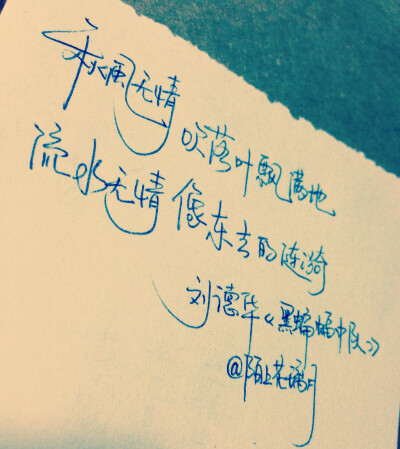 秋风无情
吹落叶飘满地
流水无情 像东去的涟漪
刘德华《黑蝙蝠中队》
@陌上花璃月